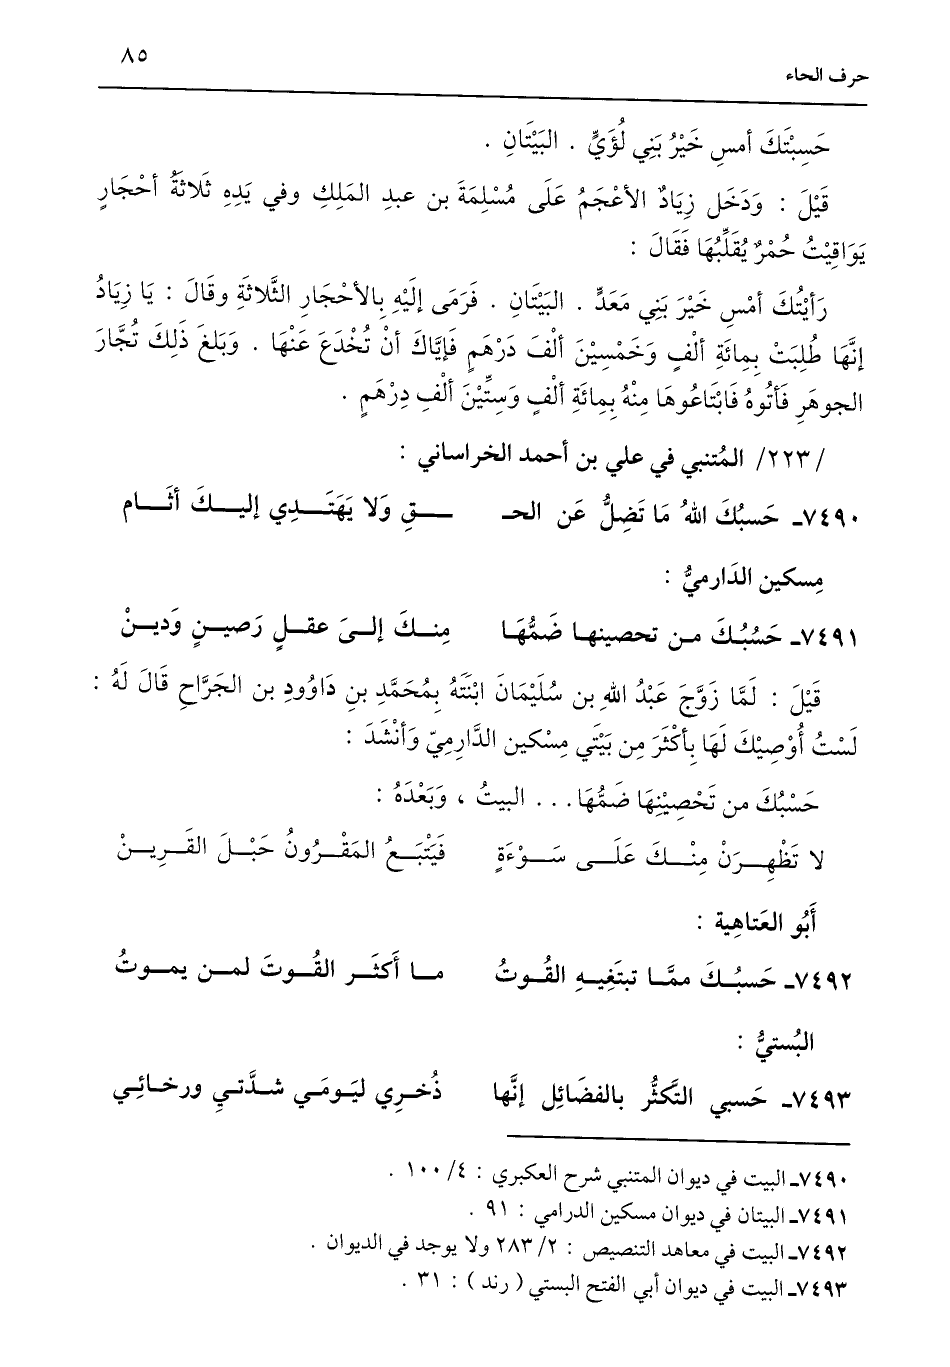 ٨٥
حرف الحاء
حَسِبْتَكَ أمسِ خَيْرُ بَنِي لُؤَيٍّ . البَيْتَانِ .
قَيْلَ : وَدَخَل زِيَادٌ الأعْجَمُ عَلَى مُسْلِمَةَ بن عبدِ المَلِكِ وفي يَدِهِ ثَلاثَةُ أحْجَارٍ
يَوَاقِيْتُ حُمْرٌ يُقَلِّبُهَا فَقَالَ :
رَأيْتُكَ أمْسِ خَيْرَ بَنِي مَعَدٍّ . البَيْتَانِ . فَرَمَى إلَيْهِ بِالأحْجَارِ الثَّلاثَةِ وقَالَ : يَا زِيَادُ
إنَّهَا طُلِبَتْ بِمِائَةِ ألْفٍ وَخَمْسِيْنَ ألْفَ دَرْهَمٍ فَإيَّاكَ أنْ تُخْدَعَ عَنْهَا . وَبَلغَ ذَلِكَ تُجَّارَ
الجوهَرِ فَأتُوهُ فَابْتَاعُوهَا مِنْهُ بِمِائَةِ ألْفٍ وَسِتِّيْنَ ألْفِ دِرْهَمٍ .
/٢٢٣/ المُتنبي في علي بن أحمد الخراساني :
٧٤٩٠ـ حَسبُكَ اللهُ مَا تَضِلُّ عَن الحـ ـــقِ وَلا يَهَتَــدِي إليــكَ أثَــام
مِسكين الدَارميُّ :
٧٤٩١ـ حَسُبُكَ مـن تحصينهـا ضَمُّهَـا مِنــكَ إلــىَ عقــلٍ رَصيــنٍ وَديــنْ
قَيْلَ : لَمَّا زَوَّجَ عَبْدُ اللهِ بن سُلَيْمَانَ ابْنَتَهُ بِمُحَمَّدِ بنِ دَاوُودِ بن الجَرَّاحِ قَالَ لَهُ :
لَسْتُ أُوْصِيْكَ لَهَا بِأكْثَرَ مِن بَيْتَي مِسْكين الدَّارِميّ وَأنْشَدَ :
حَسْبُكَ من تَحْصِيْنِهَا ضَمُّهَا... البيتُ ، وَبَعْدَهُ :
لا تَظْهِـرَنْ مِنْــكَ عَلَــى سَــوْءَةٍ فَيَتْبَــعُ المَقْـرُونُ حَبْـلَ القَـرِيـنْ
أَبُو العَتاهِية :
٧٤٩٢ـ حَسبُـكَ ممَّـا تبتَغِيـهِ القُـوتُ مـا أَكثَـر القُـوتَ لمـن يمـوتُ
البُستيُّ :
٧٤٩٣ـ حَسبي التَّكثُّر بالفَضائِل إنَّها ذُخـرِي ليَـومَي شـدَّتي ورخـائِـي
٧٤٩٠ـ البيت في ديوان المتنبي شرح العكبري : ٤/ ١٠٠ .
٧٤٩١ـ البيتان في ديوان مسكين الدرامي : ٩١ .
٧٤٩٢ـ البيت في معاهد التنصيص : ٢/ ٢٨٣ ولا يوجد في الديوان .
٧٤٩٣ـ البيت في ديوان أبي الفتح البستي ( رند ) : ٣١ .